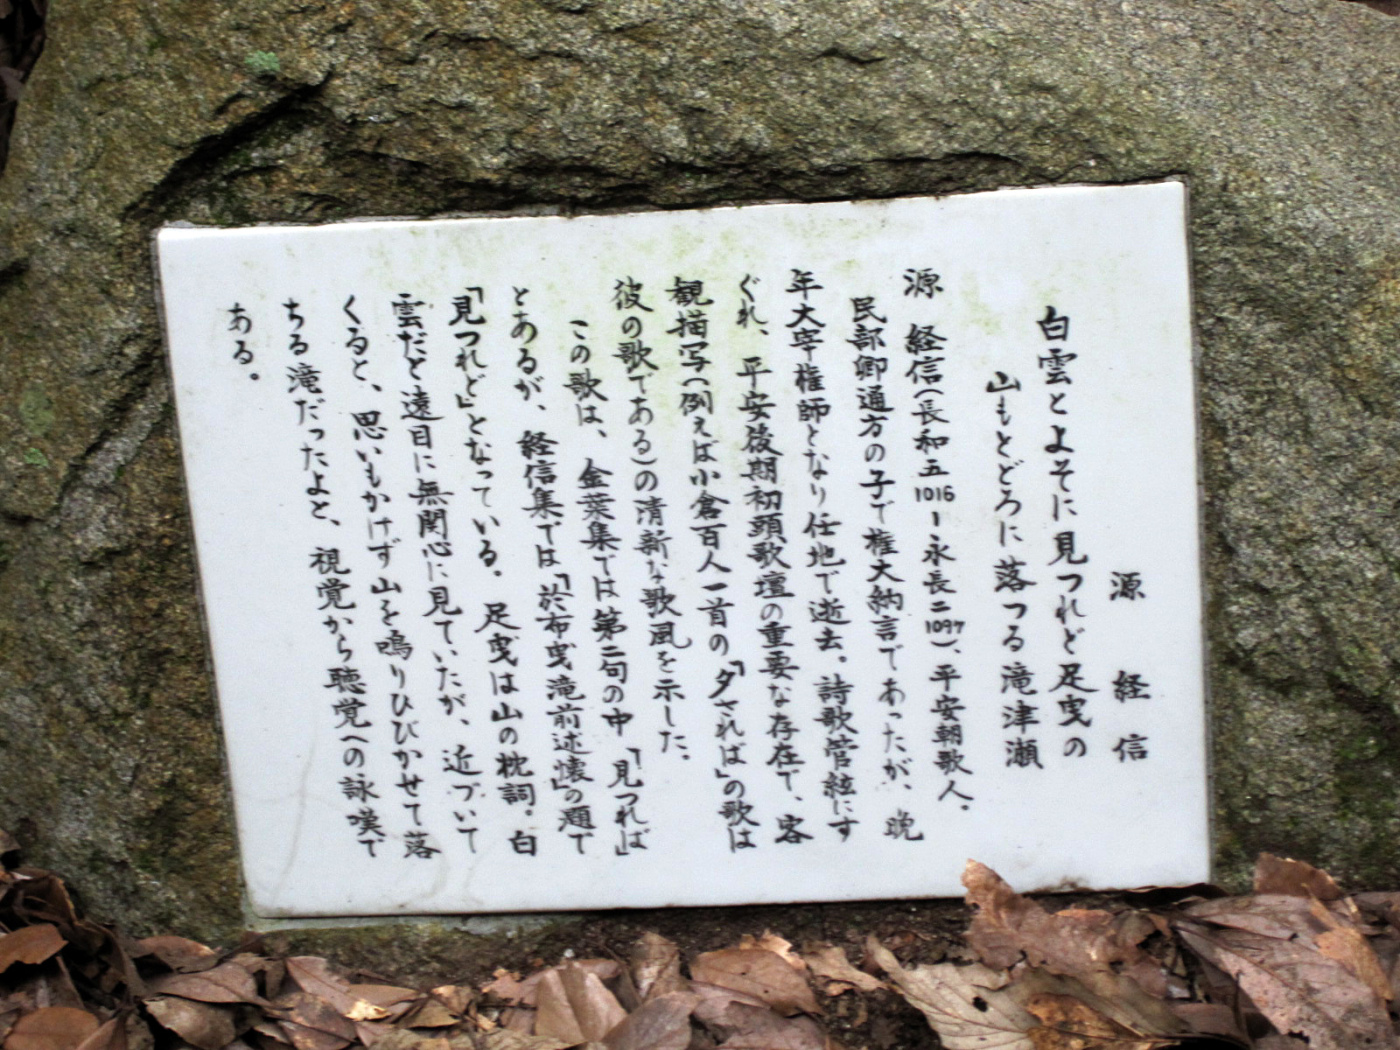 源経信
白雲とよそに見つれど足曳の
山もとどろに落つる滝津瀬
源経信(長和五1016ー永長二1097)、平安朝歌人。
民部卿通方の子で権大納言であったが、晩
年大宰権師となり任地で逝去。詩歌管絃にす
ぐれ、平安後期初頭歌壇の重要な存在で、客
観描写(例えば小倉百人一首の「夕されば」の歌は
彼の歌である)の清新な歌風を示した。
この歌は、金葉集では第二句の中「見つれば」
とあるが、経信集では「於布曳滝前述懐」の題で
「見つれど」となっている。足曳は山の枕詞。白
雲だと遠目に無関心に見ていたが、近づいて
くると、思いもかけず山を鳴りひびかせて落
ちる滝だったよと、視覚から聴覚への詠嘆で
ある。